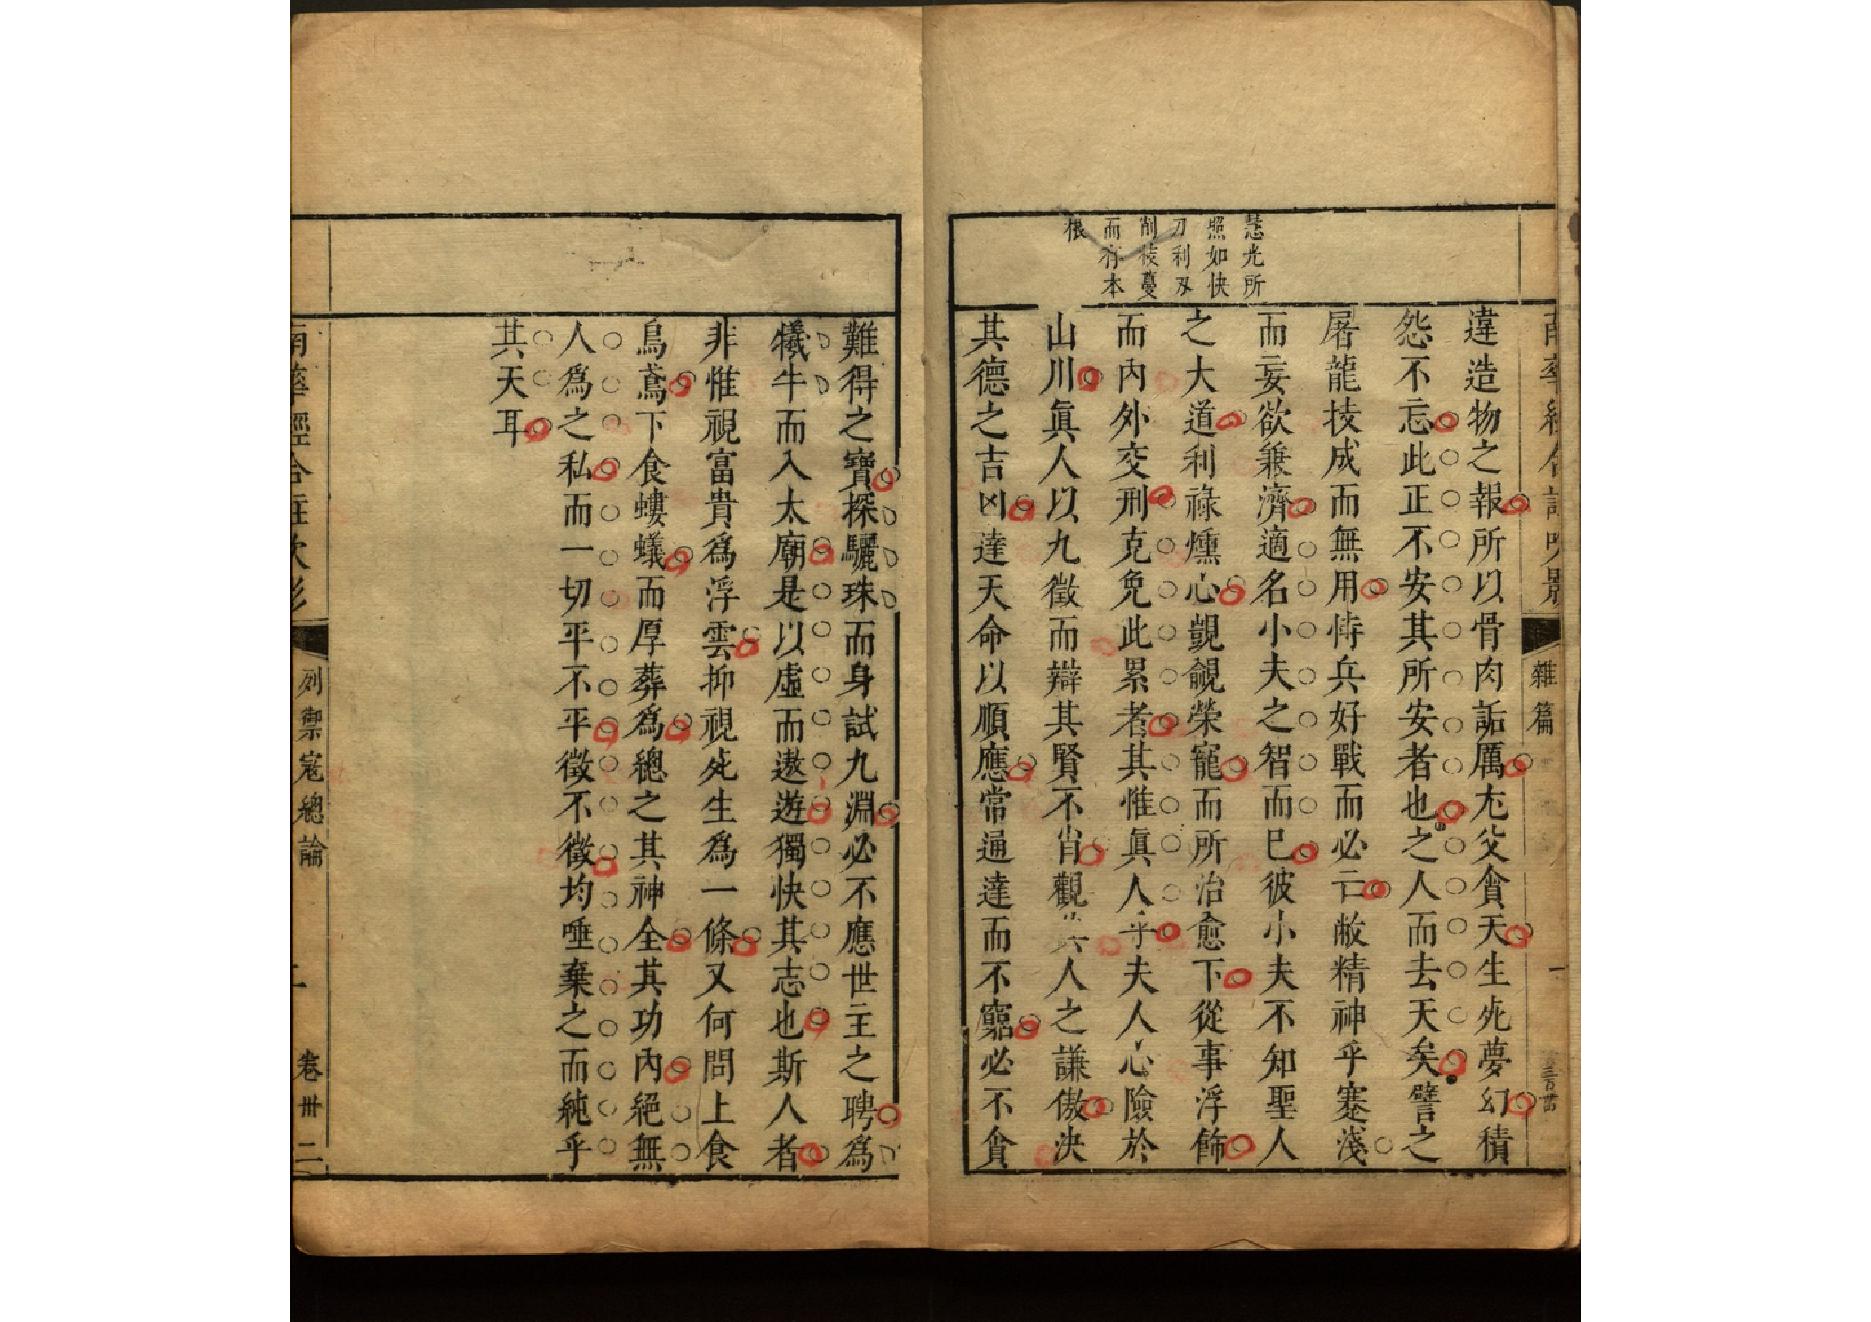 慧光所
照如快
刀利刃
削枝蔓
而存本
根
違造物之報所以骨肉詬厲尤父貪天生死夢幻積
怨不忘此正不安其所安者也之人而去天矣譬之
屠龍技成而無用恃兵好戰而必亡敝精神乎蹇淺
而妄欲兼濟適名小夫之智而已彼小夫不知聖人
之大道利祿燻心覬覦榮寵而所治愈下從事浮飾
而內外交刑克免此累者其惟眞人乎夫人心險於
山川眞人以九徵而辯其賢不肖觀其人之謙傲決
其德之吉凶達天命以順應常通達而不窮必不貪
難得之寶探驪珠而身試九淵必不應世主之聘爲
犧牛而入太廟是以虛而遨遊獨快其志也斯人者
非惟視富貴爲浮雲抑視死生爲一條又何問上食
烏鳶下食螻蟻而厚葬爲總之其神全其功內絕無
人爲之私而一切平不平徵不徵均唾棄之而純乎
其天耳
雜篇
列禦寇總論
卷卅二